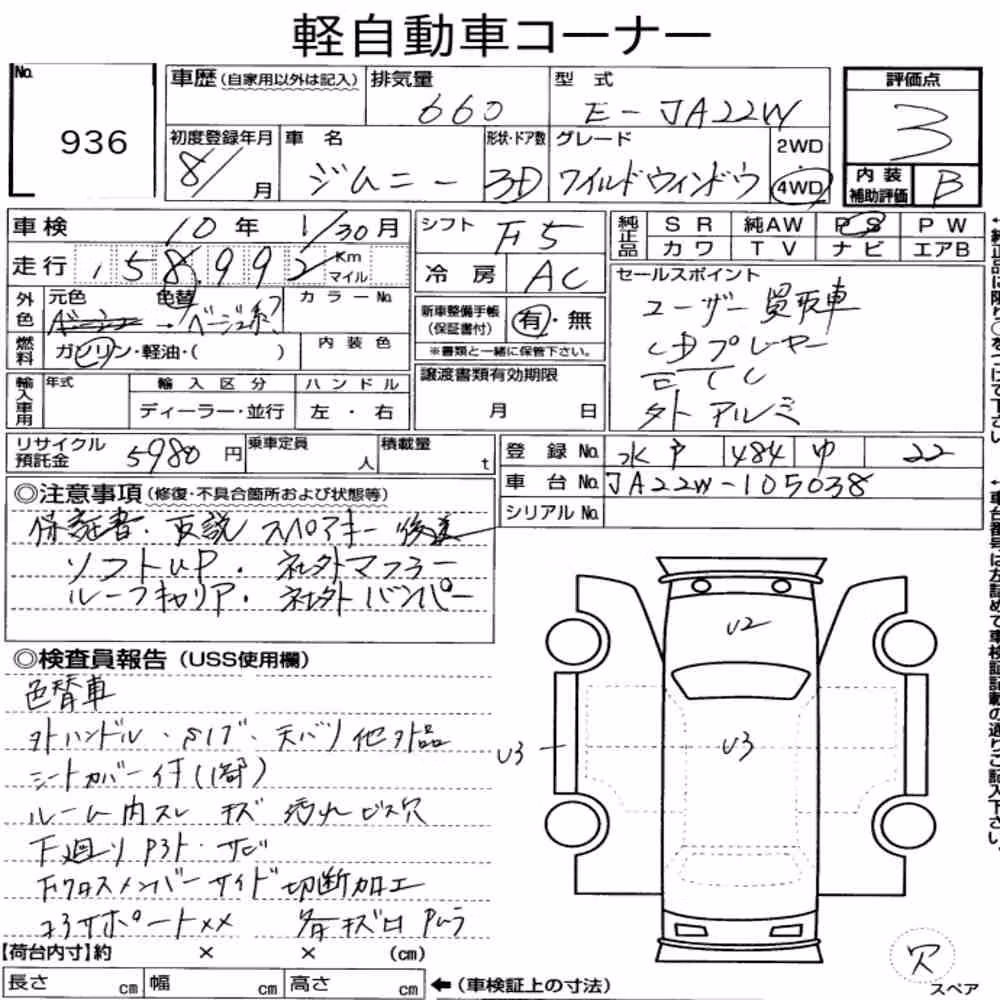 軽自動車コーナー
No. 936
車歴(自家用以外は記入) 排気量 660 型式 E-JA22W 評価点 3
初度登録年月 8/ 月 車名 ジムニー 形状・ドア数 3D グレード ワイルドウィンド 2WD・4WD 内装補助評価 B
車検 10年 1/30月 シフト F5 純正品 SR 純AW PS PW
カワ TV ナビ エアB
走行 158,992 Km マイル 冷房 AC
セールスポイント
ユーザー買取車
CDプレーヤー
ETC
社外アルミ
外色 元色 色替 →ベージュ系 カラーNo.
新車整備手帳(保証書付) 有・無
※書類と一緒に保管下さい。
燃料 ガソリン・軽油・( ) 内装色
輸入車用 年式 輸入区分 ハンドル
ディーラー・並行 左・右
譲渡書類有効期限
月 日
リサイクル預託金 5980円 乗車定員 人 積載量 t
登録No. 水戸 484 ゆ 22
車台No. JA22W-105038
シリアルNo.
◎注意事項(修復・不具合箇所および状態等)
保証書・取説 スペアキー 後送
ソフトUP・社外マフラー
ルーフキャリア・社外バンパー
◎検査員報告(USS使用欄)
色替車
外ハンドル・天バリ他外品
シートカバー付(1部)
ルーム内スレ キズ 汚れ ビス穴
下廻り サビ
Fクロスメンバーサイド切断加工
コアサポートXX
【荷台内寸】約 × × (cm)
長さ cm 幅 cm 高さ cm ←(車検証上の寸法)
U2
U3
U3
穴
スペア
←純正品に限り○をつけて下さい
←車台番号は左詰めで車検証記載の通りご記入下さい。